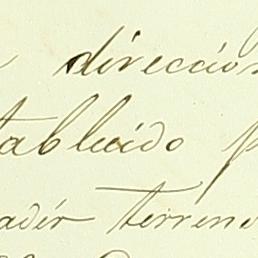 direccion
tablecido p
adir terreno